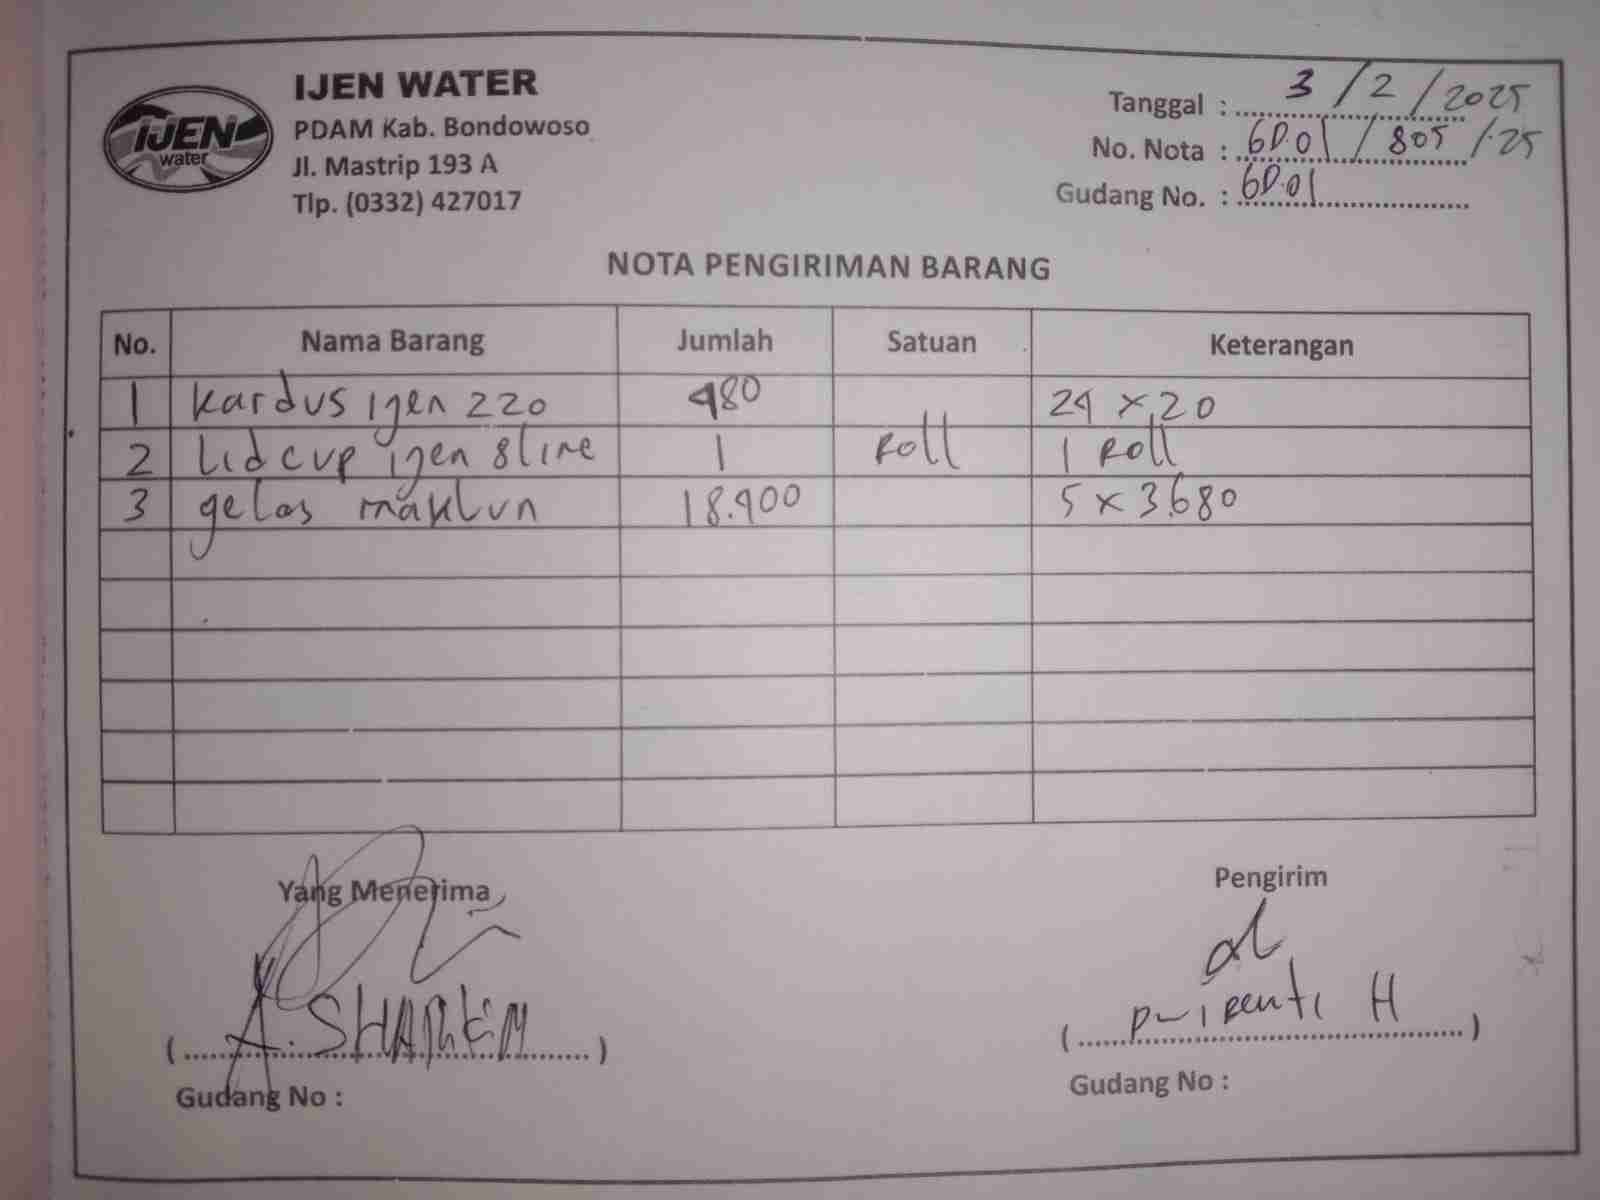 IJEN
water
IJEN WATER
PDAM Kab. Bondowoso
Jl. Mastrip 193 A
Tlp. (0332) 427017
Tanggal : 3 / 2 / 2025
No. Nota : GD.01 / 805 / 25
Gudang No. : GD.01
NOTA PENGIRIMAN BARANG
No. Nama Barang Jumlah Satuan Keterangan
1 Kardus ijen 220 480 24 x 20
2 Lid cup ijen 8 line 1 Roll 1 Roll
3 gelas maklun 18.400 5 x 3.680
Yang Menerima
Pengirim
( A. )
( H )
Gudang No :
Gudang No :